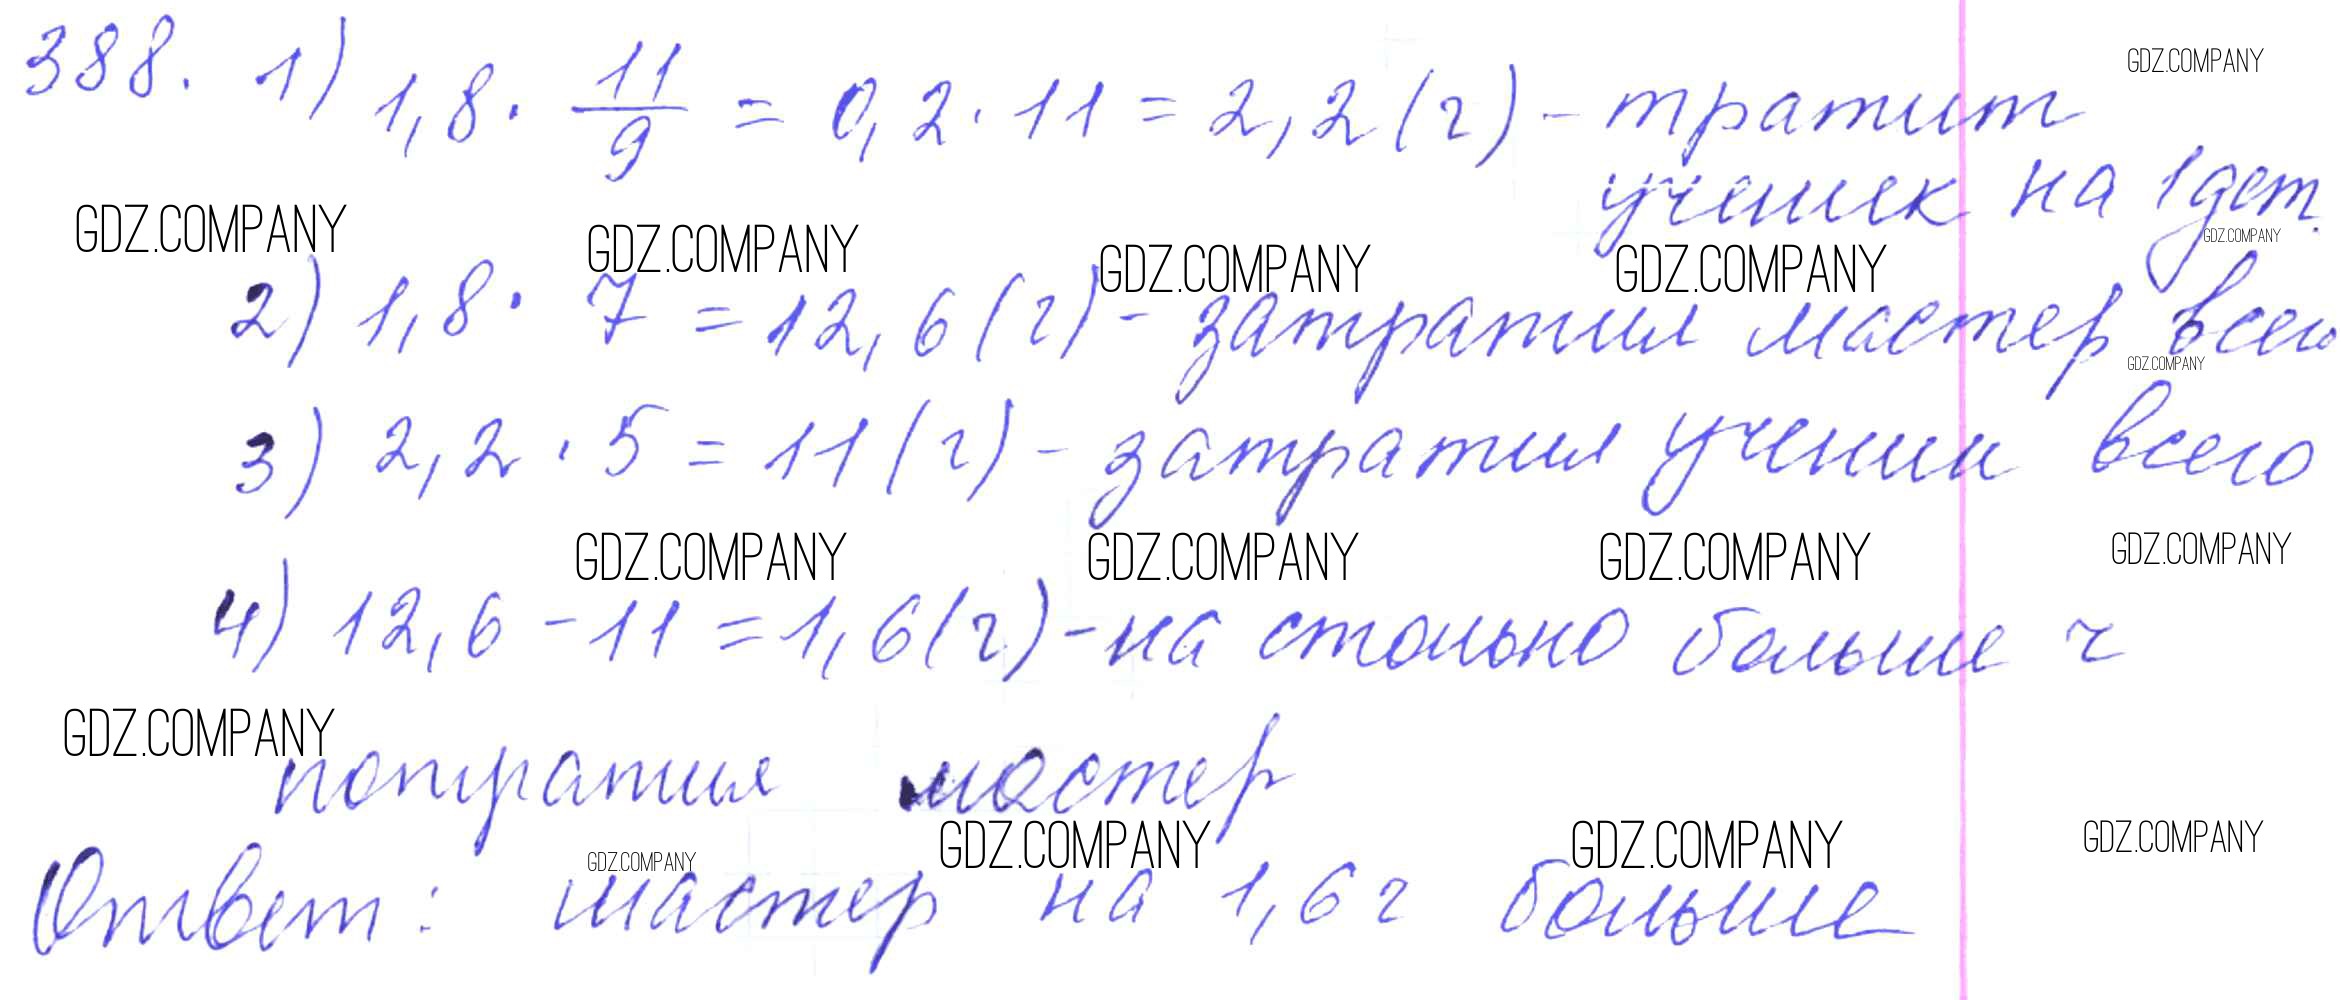 388. 1) 1,8 · 11/9 = 0,2 · 11 = 2,2 (ч) - тратит
GDZ.COMPANY
ученик на 1 дет.
GDZ.COMPANY GDZ.COMPANY GDZ.COMPANY GDZ.COMPANY GDZ.COMPANY
2) 1,8 · 7 = 12,6 (ч) - затратил мастер всего
GDZ.COMPANY
3) 2,2 · 5 = 11 (ч) - затратил ученик всего
GDZ.COMPANY GDZ.COMPANY GDZ.COMPANY GDZ.COMPANY
4) 12,6 - 11 = 1,6 (ч) - на столько больше ч
GDZ.COMPANY
потратил мастер
GDZ.COMPANY GDZ.COMPANY GDZ.COMPANY GDZ.COMPANY
Ответ: мастер на 1,6 ч больше